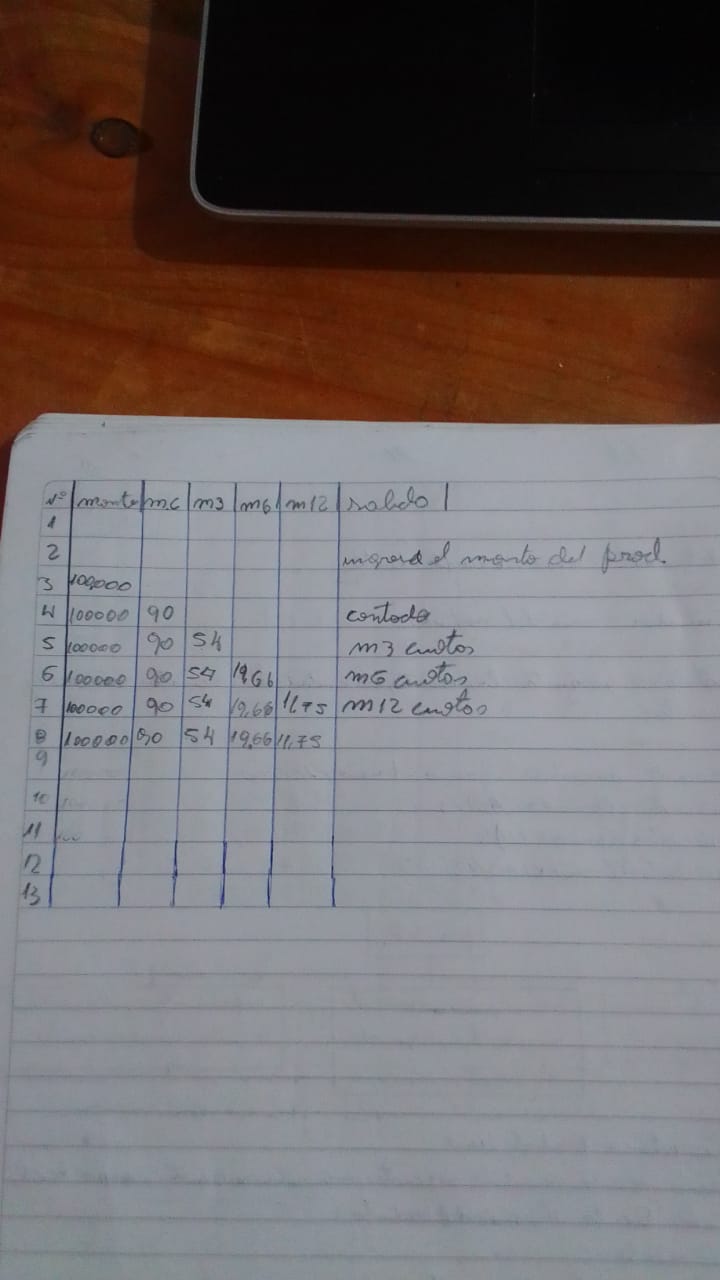 Nº monto mc m3 m6 m12 salida
1
2 ingrese el monto del prod.
3 100000
4 100000 90 contado
5 100000 90 54 m3 cuotas
6 100000 90 54 19,66 m6 cuotas
7 100000 90 54 19,66 11,75 m12 cuotas
8 100000 90 54 19,66 11,75
9
10
11 ...
12
13